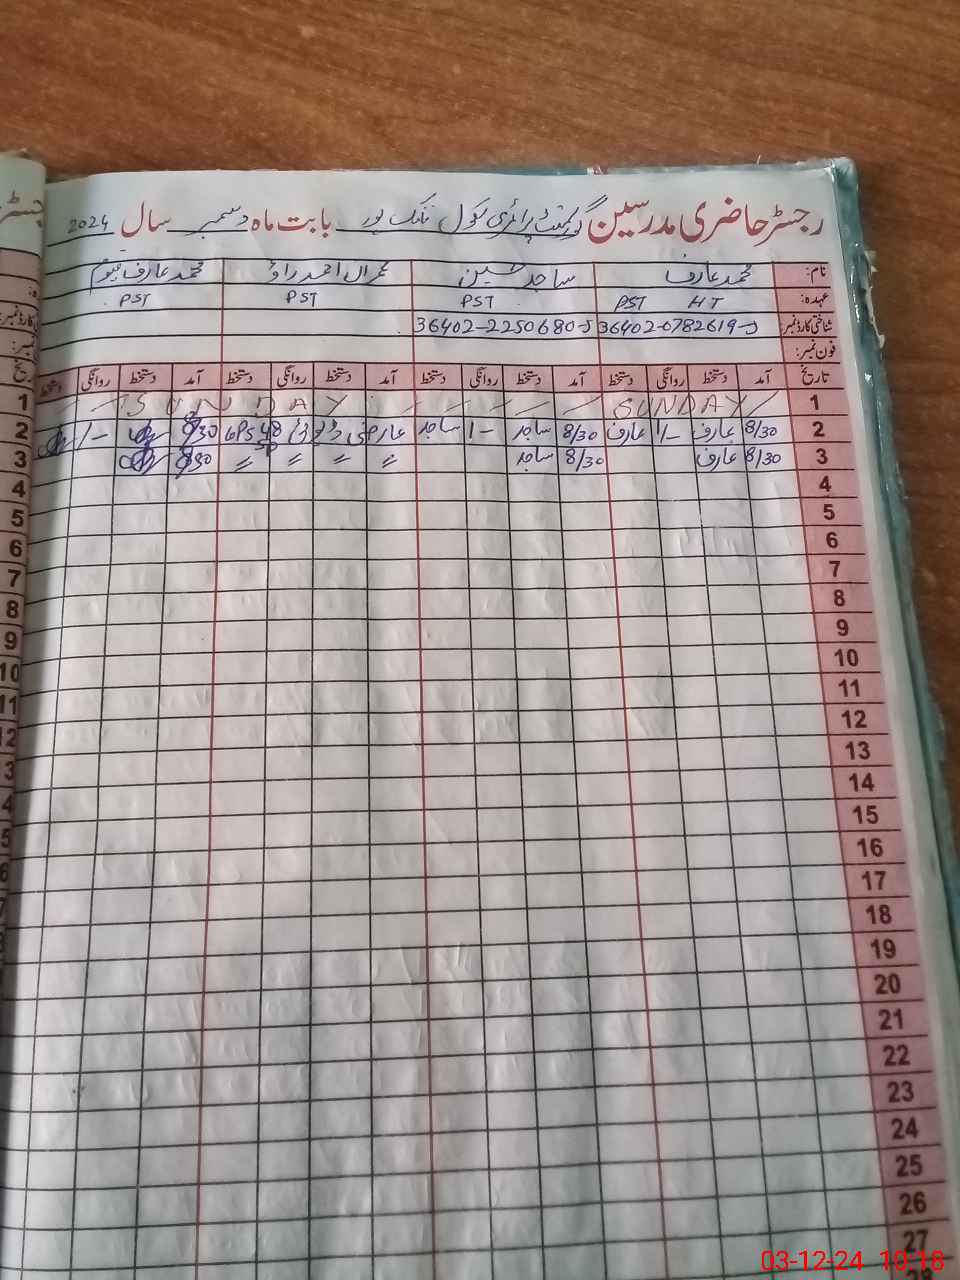 رجسٹر حاضری مدرسین گورنمنٹ پرائمری سکول نانک پور بابت ماہ دسمبر سال 2024
نام: محمد عارف ساجد حسین عمران احمد راؤ محمد عارف قیوم
عہدہ: PST HT PST PST PST
شناختی کارڈ نمبر: 36402-0782619-5 36402-2250680-5
فون نمبر:
تاریخ آمد دستخط روانگی دستخط آمد دستخط روانگی دستخط آمد دستخط روانگی دستخط آمد دستخط روانگی دستخط
1 SUNDAY SUNDAY
2 8/30 عارف 1/- عارف 8/30 ساجد 1/- ساجد عارضی ڈیوٹی GPS 48 SP 8/30 1/-
3 8/30 عارف 8/30 ساجد 〃 〃 〃 〃 8/30
4
5
6
7
8
9
10
11
12
13
14
15
16
17
18
19
20
21
22
23
24
25
26
27
03-12-24 10:18